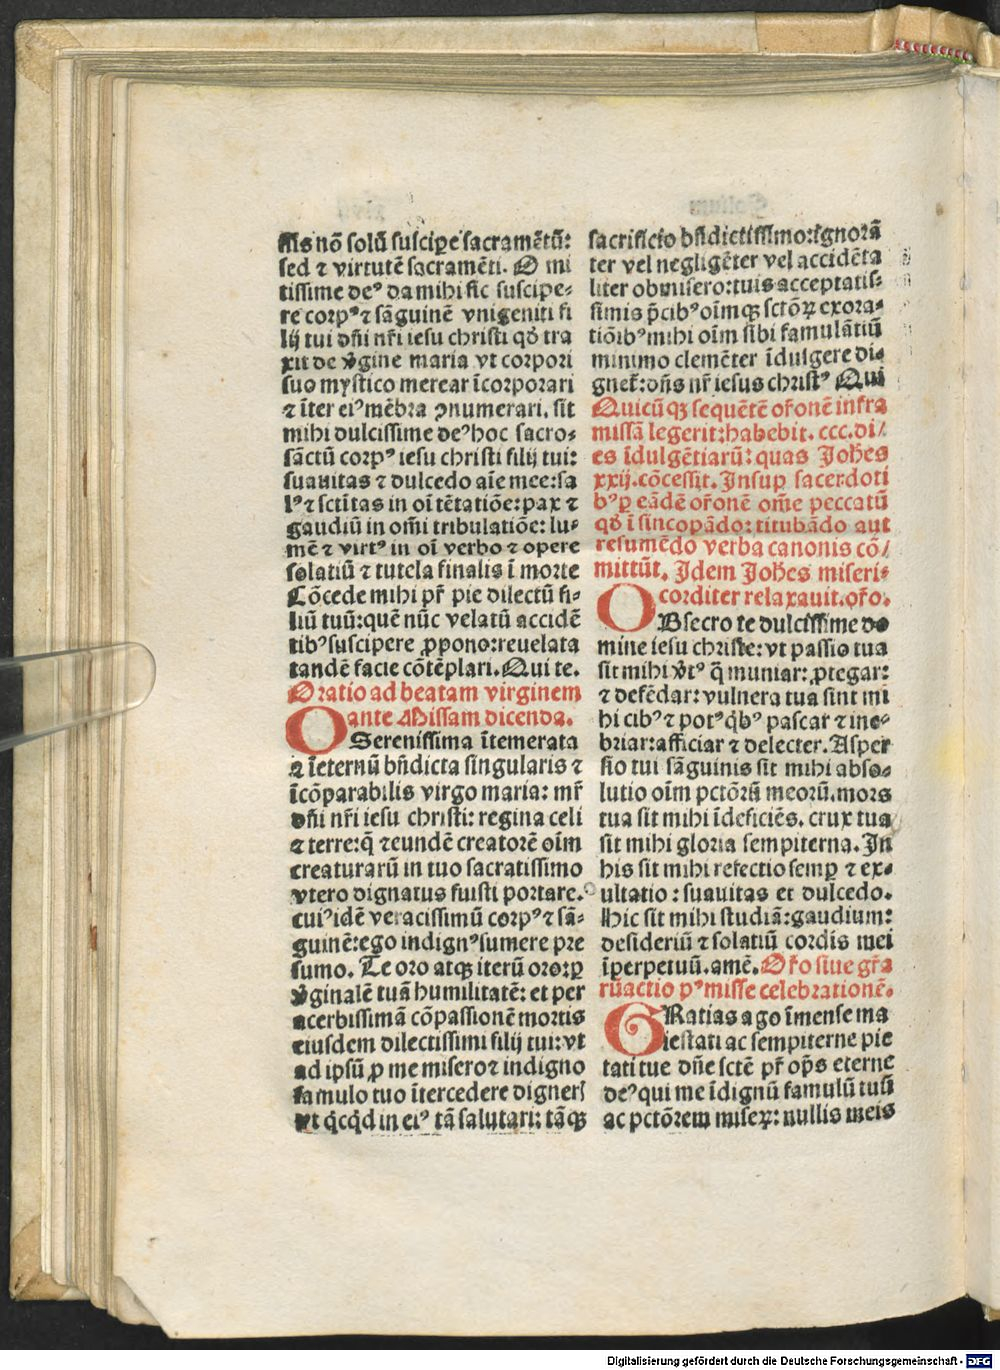 ſſis nõ ſolũ ſuſciꝑe ſacramẽtũ:
ſed ⁊ virtutẽ ſacramẽti. O mi
tiſſime deꝰ da mihi ſic ſuſcipe-
re corpꝰ ⁊ ſãguinẽ vnigeniti fi
lij tui dñi nr̃i ieſu chriſti qđ tra
xit de ṽgine maria vt corpori
ſuo myſtico merear ĩcorporari
⁊ ĩter eiꝰ mẽbra ꝯnumerari. ſit
mihi dulciſſime deꝰ hoc ſacro-
ſãctũ corpꝰ ieſu chriſti filij tui:
ſuauitas ⁊ dulcedo aĩe mee: ſa
lꝰ ⁊ ſctĩtas in oĩ tẽtatiõe: pax ⁊
gaudiũ in om̃i tribulatiõe: lu-
mẽ ⁊ virtꝰ in oĩ verbo ⁊ opere
ſolatiũ ⁊ tutela finalis ĩ morte
Cõcede mihi pr̃ pie dilectũ fi-
liũ tuũ: quẽ nũc velatũ accidẽ
tibꝰ ſuſcipere ꝓpono: reuelata
tandẽ facie cõtẽplari. Qui te.
Oratio ad beatam virginem
ante Miſſam dicenda.
O Sereniſſima ĩtemerata
⁊ ĩeternũ bñdicta ſingularis ⁊
ĩcõparabilis virgo maria: mr̃
dñi nr̃i ieſu chriſti: regina celi
⁊ terre: q̃ ⁊ eundẽ creatorẽ oĩm
creaturarũ in tuo ſacratiſſimo
vtero dignatus fuiſti portare.
cuiꝰ idẽ veraciſſimũ corpꝰ ⁊ ſã-
guinẽ: ego indignꝰ ſumere pre
ſumo. Te oro atqꝫ iterũ oro: ꝑ
ṽginalẽ tuã humilitatẽ: et per
acerbiſſimã cõpaſſionẽ mortis
eiuſdem dilectiſſimi filij tui: vt
ad ipſũ ꝓ me miſero ⁊ indigno
famulo tuo ĩtercedere digneri
vt q̇cq̇d in eiꝰ tã ſalutari: tãqꝫ
ſacrificio bñdictiſſimo: ignorã
ter vel negligẽter vel accidẽta
liter obmiſero: tuis acceptatiſ-
ſimis p̃cibꝰ oĩmqꝫ ſctõꝝ exora-
tiõibꝰ mihi oĩm ſibi famulãtiũ
minimo clemẽter ĩdulgere di-
gnet̃: dñs nr̃ ieſus chriſtꝰ Qui
Quicũqꝫ ſequẽtẽ or̃onẽ infra
miſſã legerit: habebit. ccc. di/
es ĩdulgẽtiarũ: quas Joh̃es
xxij. cõceſſit. Inſuꝑ ſacerdoti
bꝰ ꝑ eãdẽ or̃onẽ om̃e peccatũ
qđ ĩ ſincopãdo: titubãdo aut
reſumẽdo verba canonis cõ/
mittũt. Idem Joh̃es miſeri-
corditer relaxauit. or̃o.
OBſecro te dulciſſime do
mine ieſu chriſte: vt paſſio tua
ſit mihi ṽtꝰ q̃ muniar: ꝓtegar:
⁊ defẽdar: vulnera tua ſint mi
hi cibꝰ ⁊ potꝰ q̇bꝰ paſcar ⁊ ine-
briar: afficiar ⁊ delecter. Aſper
ſio tui ſãguinis ſit mihi abſo-
lutio oĩm pctõrũ meorũ. mors
tua ſit mihi ĩdeficiẽs. crux tua
ſit mihi gloria ſempiterna. In
his ſit mihi refectio ſemꝑ ⁊ ex-
ultatio: ſuauitas et dulcedo.
Hic ſit mihi ſtudiũ: gaudium:
deſideriũ ⁊ ſolatiũ cordis mei
ĩperpetuũ. amẽ. Or̃o ſiue gr̃a
rũactio pꝰ miſſe celebrationẽ.
GRatias ago ĩmenſe ma
ieſtati ac ſempiterne pie
tati tue dñe ſctẽ pr̃ op̃s eterne
deꝰ qui me ĩdignũ famulũ tuũ
ac pctõrem miſeꝝ: nullis meis
Digitalisierung gefördert durch die Deutsche Forschungsgemeinschaft - DFG